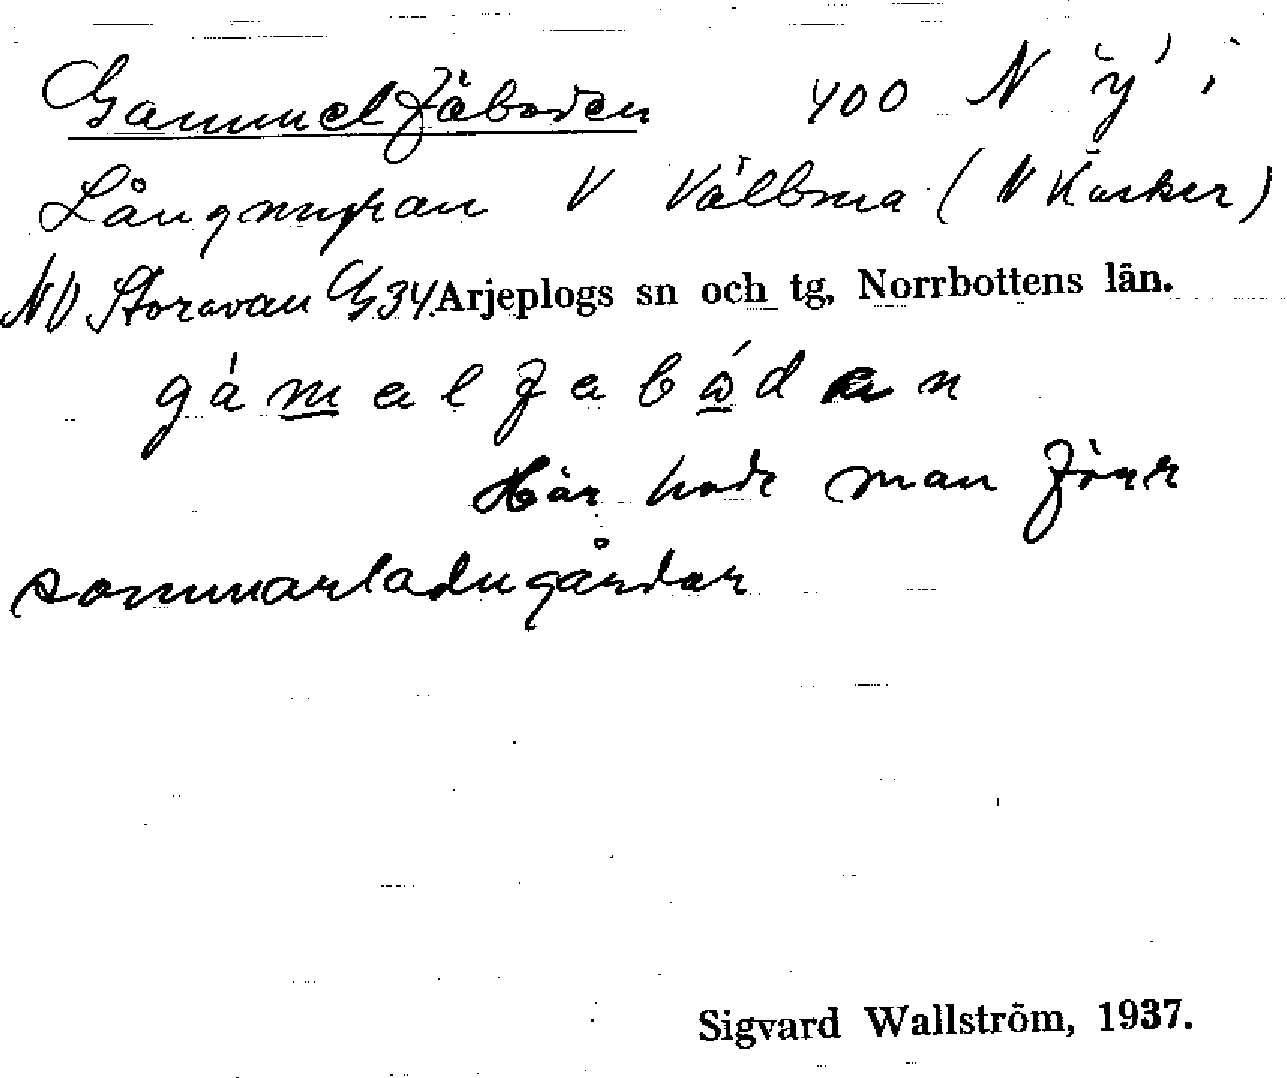 Gammelfäboden 400 N
Långnupan V Välbma (N Kasker)
NV Storavan G34 Arjeplogs sn och tg, Norrbottens län.
gámelfebåden
Här hade man förr
sommarladugårdar
Sigvard Wallström, 1937.